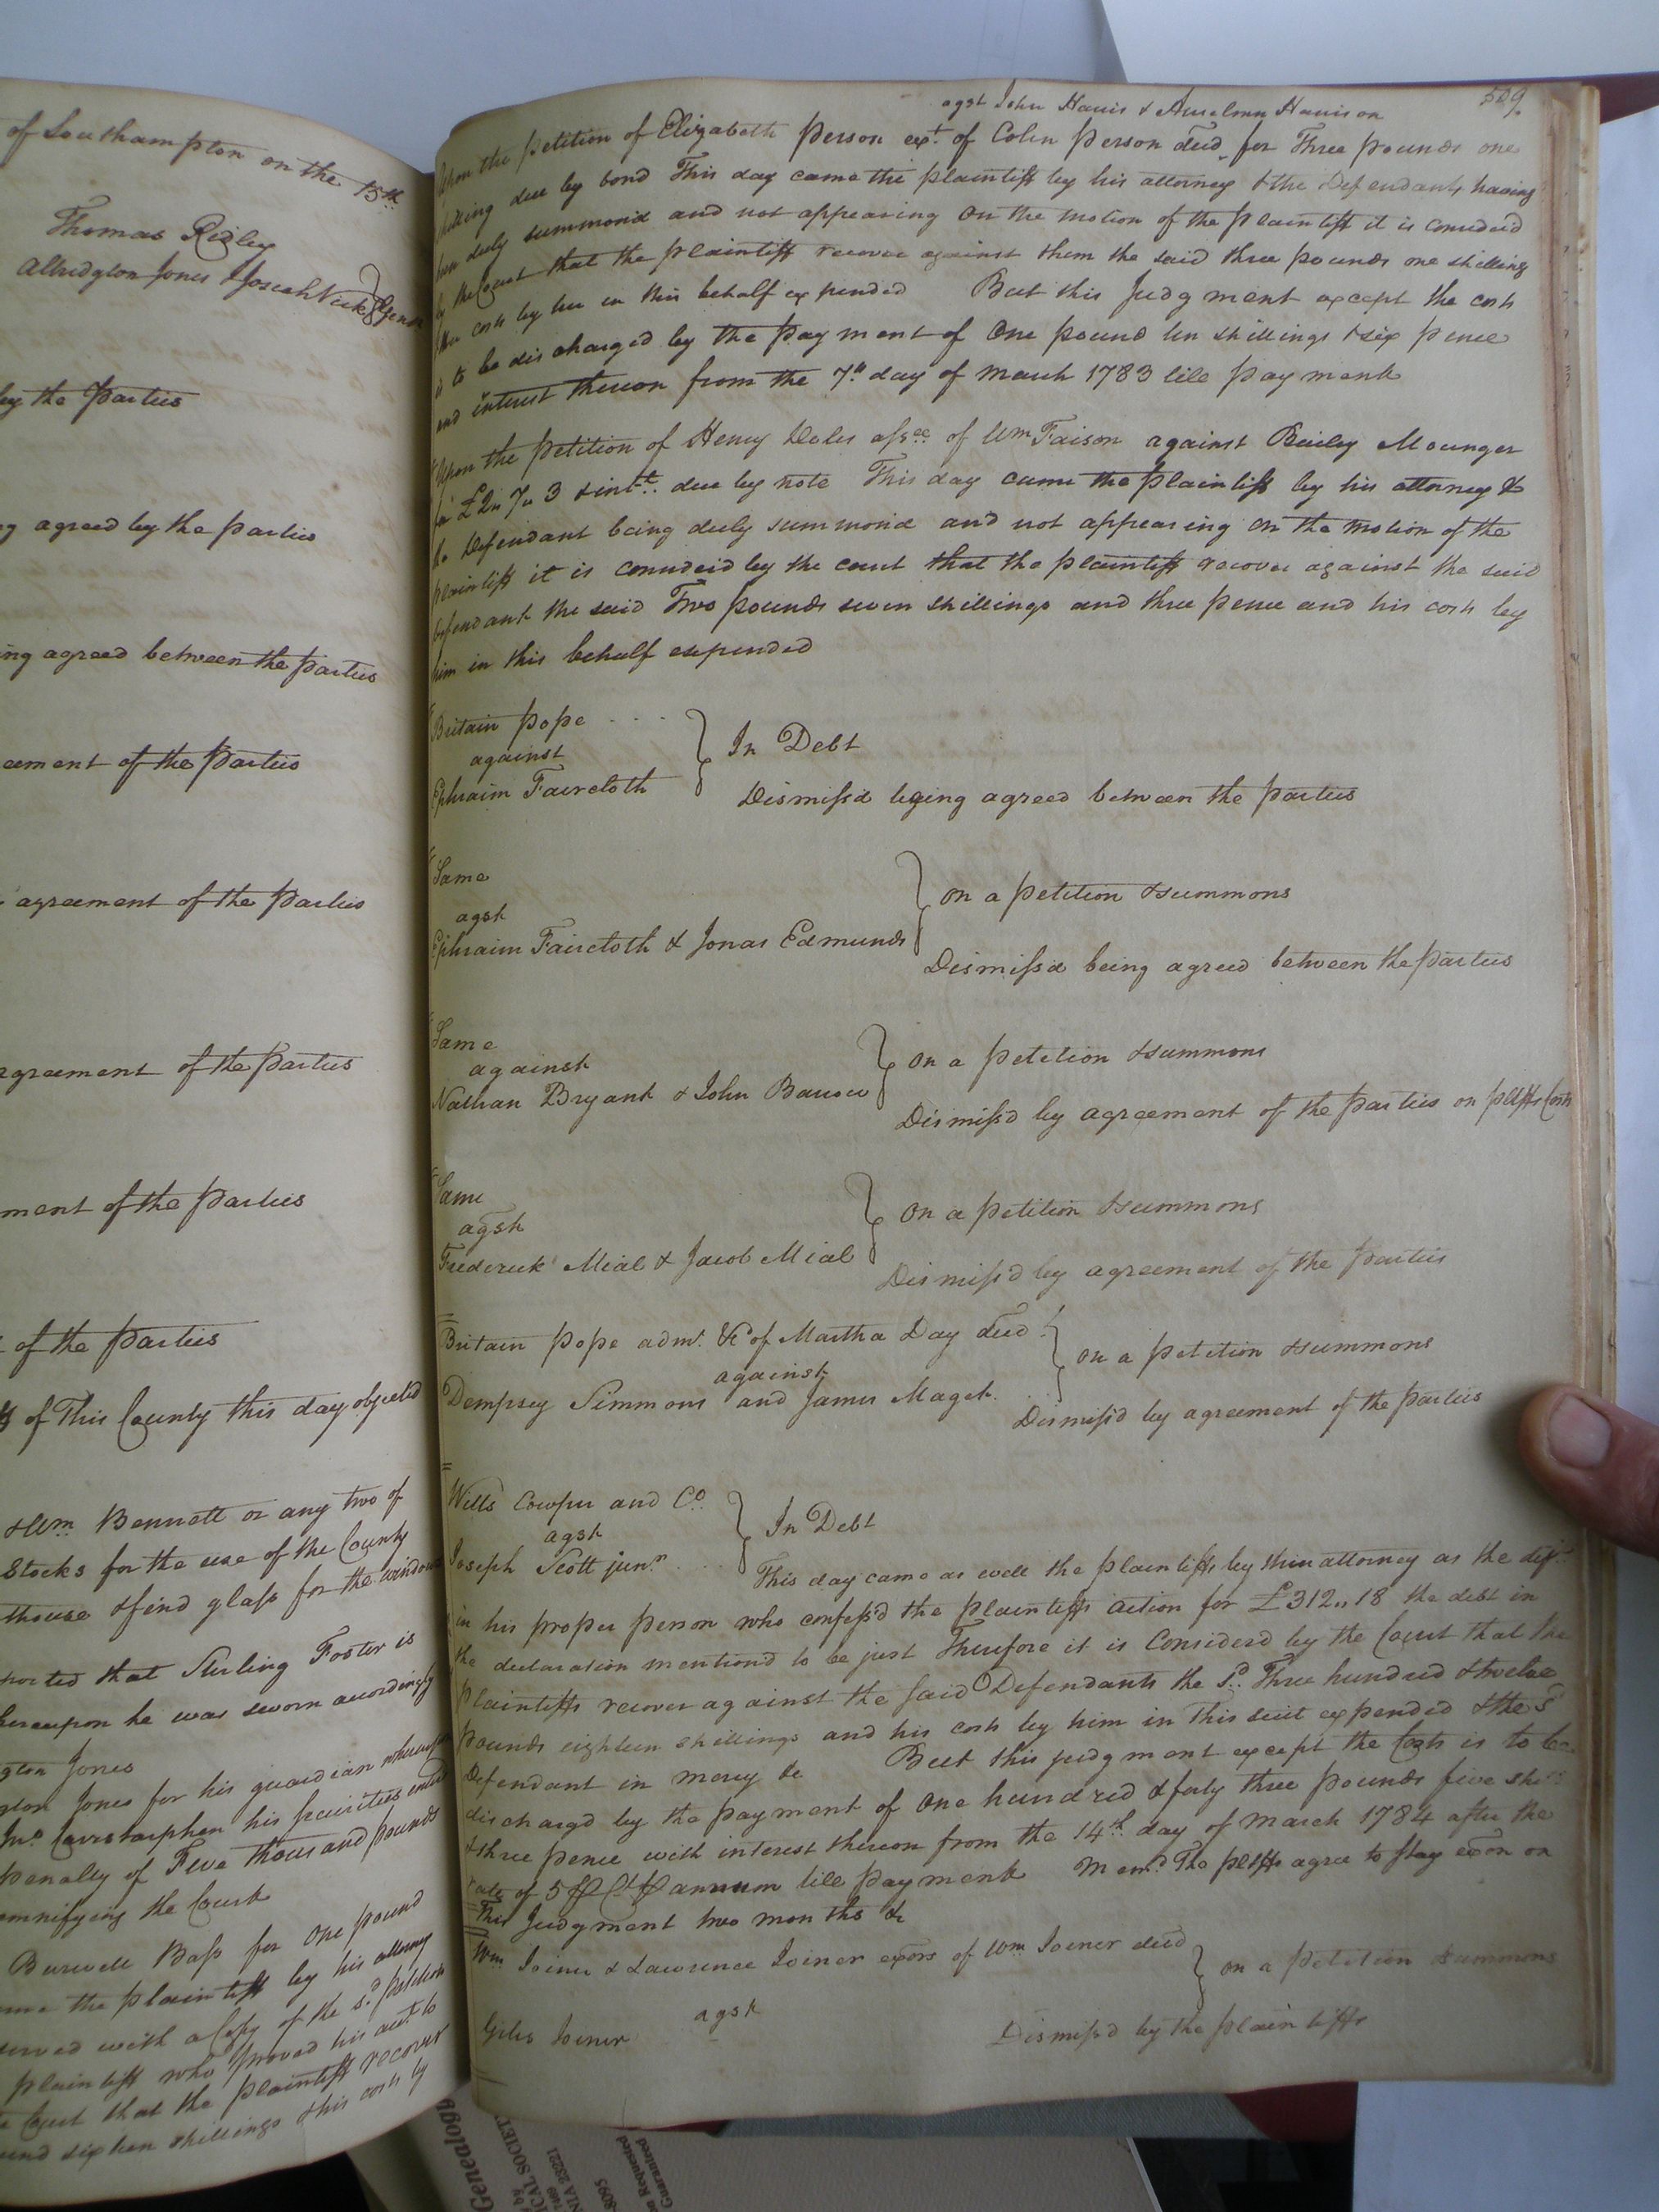 of Southampton on the 15th
Thomas Ridley
Allridgton Jones & Joseph Gent
by the Parties
agreed by the parties
ing agreed between the Parties
eement of the Parties
agreement of the Parties
agreement of the Parties
ment of the Parties
of the Parties
of This County this day objected
& Wm Bennett or any two of
Stocks for the use of the County
thouse & find glass for the window
ported that Sterling Foster is
hereupon he was sworn accordingly
gton Jones
gton Jones for his guardian whereupon
Jno Carrstarphen his securities
penalty of Five thousand pounds
emnifying the Court
Burwell Bass for One pound
the plaintiff by his attorney
served with a Copy of the sd petition
plaintiff who proved his acct to
Court that the plaintiff recover
und sixteen shillings & his costs by
509.
agst John Harris & Anselmn Harrison
Upon the petition of Elizabeth Person exx of Colin Person decd for Three pounds one
shilling due by bond This day came the plaintiff by his attorney & the Defendants having
been duly summond and not appearing On the motion of the plaintiff it is considerd
by the Court that the plaintiff recover against them the said three pounds one shilling
& her costs by her in this behalf expended But this Judgment except the costs
is to be discharged by the payment of One pound ten shillings & six pence
and interest thereon from the 7th day of March 1783 till payment
Upon the petition of Henry Dales assee of Wm Faison against Bailey Mounger
for £2" 7" 3 & intt due by note This day came the plaintiff by his attorney &
the Defendant being duly summond and not appearing on the motion of the
plaintiff it is considerd by the court that the plaintiff recover against the said
Defendant the said Two pounds seven shillings and three pence and his costs by
him in this behalf expended
Britain Pope
against
Ephraim Faircloth
In Debt
Dismiss'd being agreed between the parties
Same
agst
Ephraim Faircloth & Jonas Edmunds
on a petition & summons
Dismiss'd being agreed between the parties
Same
against
Nathan Bryant & John Barrow
on a petition & summons
Dismiss'd by agreement of the parties on pltffs Costs
Same
agst
Frederick Mial & Jacob Mial
On a petition & summons
Dismiss'd by agreement of the parties
Britain Pope admr &c of Martha Day decd
against
Dempsey Simmons and James Maget
on a petition & summons
Dismiss'd by agreement of the parties
Wills Cowper and Co
agst
Joseph Scott junr
In Debt
This day came as well the plaintiffs by their attorney as the deft
in his proper person who confess'd the plaintiffs action for £312"18 the debt in
the declaration mentiond to be just Therefore it is Considerd by the Court that the
plaintiffs recover against the said Defendants the sd Three hundred & twelve
pounds eighteen shillings and his costs by him in this suit expended & the sd
Defendant in mercy &c But this judgment except the Costs is to be
dischargd by the payment of One hundred & forty three pounds five shills
& three pence with interest thereon from the 14th day of March 1784 after the
rate of 5 P Ct P annum till payment Memd The pltffs agree to stay exon on
This Judgment two months &c
Wm Joiner & Lawrence Joiner exors of Wm Joiner decd
agst
Giles Joiner
on a petition & summons
Dismiss'd by the plaintiffs
Genealogi
CAL SOCIET
NIA 23221
8095
n Requested
Guaranteed